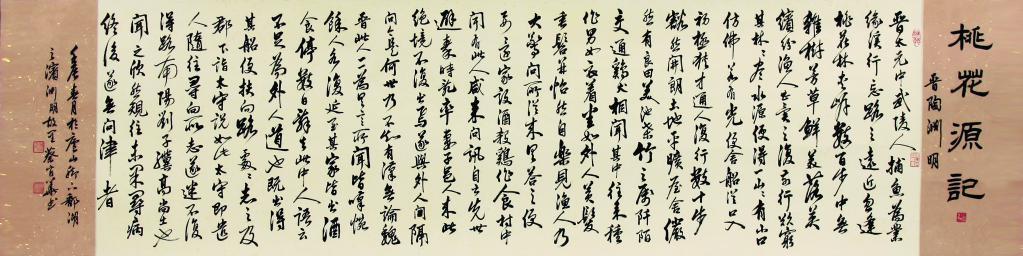 桃花源記
晋陶渊明
晋太元中武陵人捕魚為業
緣溪行忘路之遠近忽逢
桃花林夹岸數百步中無
雜樹芳草鮮美落英
繽紛漁人甚異之復前行欲窮
其林林盡水源便得一山山有小口
仿佛若有光便舍船從口入
初極狹才通人復行數十步
豁然開朗土地平曠屋舍儼
然有良田美池桑竹之屬阡陌
交通鷄犬相聞其中往来種
作男女衣着悉如外人黄髮
垂髫并怡然自樂見漁人乃
大驚問所從来具答之便
要還家設酒殺鷄作食村中
聞有此人咸来問訊自云先世
避秦時亂率妻子邑人来此
絶境不復出焉遂與外人間隔
問今是何世乃不知有漢無論魏
晋此人一一為具言所聞皆嘆惋
餘人各復延至其家皆出酒
食停數日辞去此中人語云
不足為外人道也既出得
其船便扶向路處處志之及
郡下詣太守説如此太守即遣
人隨往尋向所志遂迷不復
得路南陽劉子驥高尚士也
聞之欣然規往未果尋病
終後遂無問津者
春月於廬山脚下鄱湖
之濱渊明故里蔡